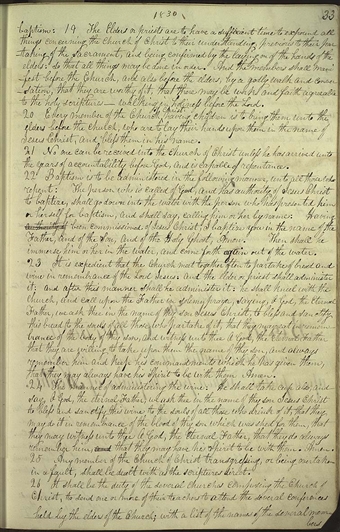 1830
33
baptism: 19. The Elders or priests are to have a sufficient time to expound all
things concerning the Church of Christ to their understanding, previous to their par-
taking of the Sacrament, and being confirmed by the laying on of the hands of the
elders: so that all things may be done in order. And the members shall mani-
fest before the Church, and also before the elders, by a godly walk and conver-
sation, that they are worthy of it, that there may be works and faith agreeable
to the holy scriptures— walking in holiness before the Lord.
20 Every member of the Church of Christ having children is to bring them unto the
elders before the Church, who are to lay their hands upon them in the name of
Jesus Christ, and bless them in his name.
21 No one can be received into the Church of Christ unless he has arrived unto
the years of accountability before God, and is capable of repentance.
22 Baptism is to be administered in the following manner, unto all those who
repent: The person who is called of God, and has authority of Jesus Christ
to baptize, shall go down into the water with the person who has presented him
or herself for baptism, and shall say, calling him or her by name: Having
been commissioned of Jesus Christ, I baptize you in the name of the
Father, and of the Son, and of the Holy Ghost, Amen. Then shall he
immerse him or her in the water, and come forth again out of the water.
23 It is expedient that the Church meet together often to partake of bread and
wine in remembrance of the Lord Jesus: And the elder or priest shall administer
it; and after this manner shall he administer it: he shall kneel with the
church, and call upon the Father in solemn prayer, saying, O God, the eternal
Father, we ask thee in the name of thy son Jesus Christ, to bless and sanctify
this bread to the souls of all those who partake of it, that they may eat in remem-
brance of the body of thy son, and witness unto thee O God, the Eternal Father,
that they are willing to take upon them the name of thy son, and always
remember him and keep his commandments which he has given them,
that they may always have his Spirit to be with them. Amen.
24 of administering the wine: He shall take the cup also, and
say, O God, the eternal Father, we ask thee in the name of thy son Jesus Christ
to bless and sanctify this wine to the souls of all those who drink of it, that they
may do it in remembrance of the blood of thy son which was shed for them, that
they may witness unto thee O God, the Eternal Father, that they do always
remember him, that they may have his Spirit to be with them. Amen.
25 Any member of the Church of Christ transgressing, or being overtaken
in a fault, shall be dealt with as the scriptures direct.
26 It shall be the duty of the several churches composing the Church of
Christ, to send one or more of their teachers to attend the several conferences
held by the elders of the Church, with a list of the names of the several mem-
bers